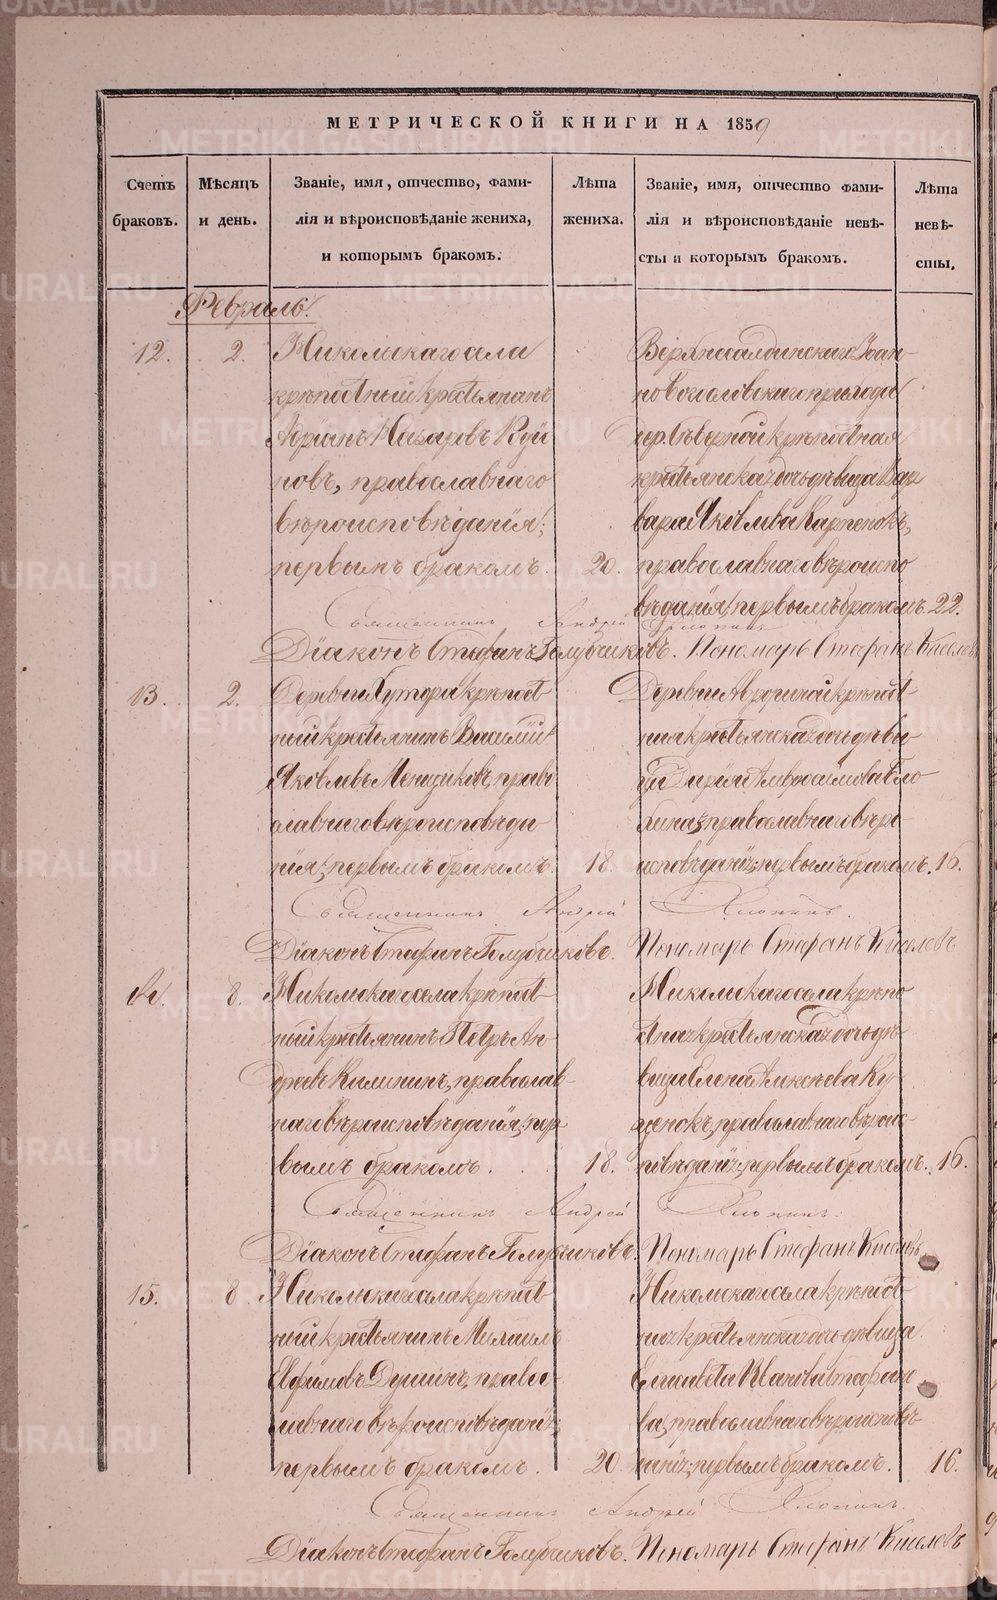 МЕТРИЧЕСКОЙ КНИГИ НА 1859
Счетъ браковъ.
Мѣсяцъ и день.
Званіе, имя, отчество, фами-
лія и вѣроисповѣданіе жениха,
и которымъ бракомъ.
Лѣта жениха.
Званіе, имя, отчество фами-
лія и вѣроисповѣданіе невѣ-
сты и которымъ бракомъ.
Лѣта невѣ-
сты.
Февраль.
12. 2. Никольскаго села
крѣпостный крестьянинъ
Адріанъ Назаровъ
новъ, православнаго
вѣроисповѣданія;
первымъ бракомъ. 20.
Верхнесалдинскаго Іоан-
но Богословскаго прихода
дер. Сѣверной крѣпостная
крестьянская дочь дѣвица Вар
вара Яковлева Карпенокъ,
православнаго вѣроиспо
вѣданія; первымъ бракомъ. 22.
Священникъ Андрей Хлопинъ.
Діаконъ Стефанъ Голубчиковъ. Пономарь Стефанъ Киселевъ
13. 2. Деревни крѣпост
ный крестьянинъ Василій
Яковлевъ Менщиковъ, право
славнаго вѣроисповѣда
нія; первымъ бракомъ. 18.
Деревни крѣпост
ная крестьянская дочь дѣви
ца Дарія Амвросимова Бло
хина, православнаго вѣро
исповѣданія; первымъ бракомъ. 16.
Священникъ Андрей Хлопинъ.
Діаконъ Стефанъ Голубчиковъ. Пономарь Стефанъ Киселевъ
14. 8. Никольскаго села крѣпост
ный крестьянинъ Петръ Ан
дреевъ Калининъ, православ-
наго вѣроисповѣданія; пер
вымъ бракомъ. 18.
Никольскаго села крѣпо
стная крестьянская дочь дѣ
вица Елена Алексѣева Ку
ценокъ, православнаго вѣроис
повѣданія; первымъ бракомъ. 16.
Священникъ Андрей Хлопинъ.
Діаконъ Стефанъ Голубчиковъ. Пономарь Стефанъ Киселевъ
15. 8 Никольскаго села крѣпост
ный крестьянинъ Михаилъ
Ефимовъ Душинъ, правос
лавнаго вѣроисповѣданія;
первымъ бракомъ. 20
Никольскаго села крѣпост
ная крестьянская дочь дѣвица
Елисавета Иванова Стефано
ва, православнаго вѣроисповѣ-
данія; первымъ бракомъ. 16.
Священникъ Андрей Хлопинъ.
Діаконъ Стефанъ Голубчиковъ. Пономарь Стефанъ Киселевъ
METRIKI.GASO-URAL.RU